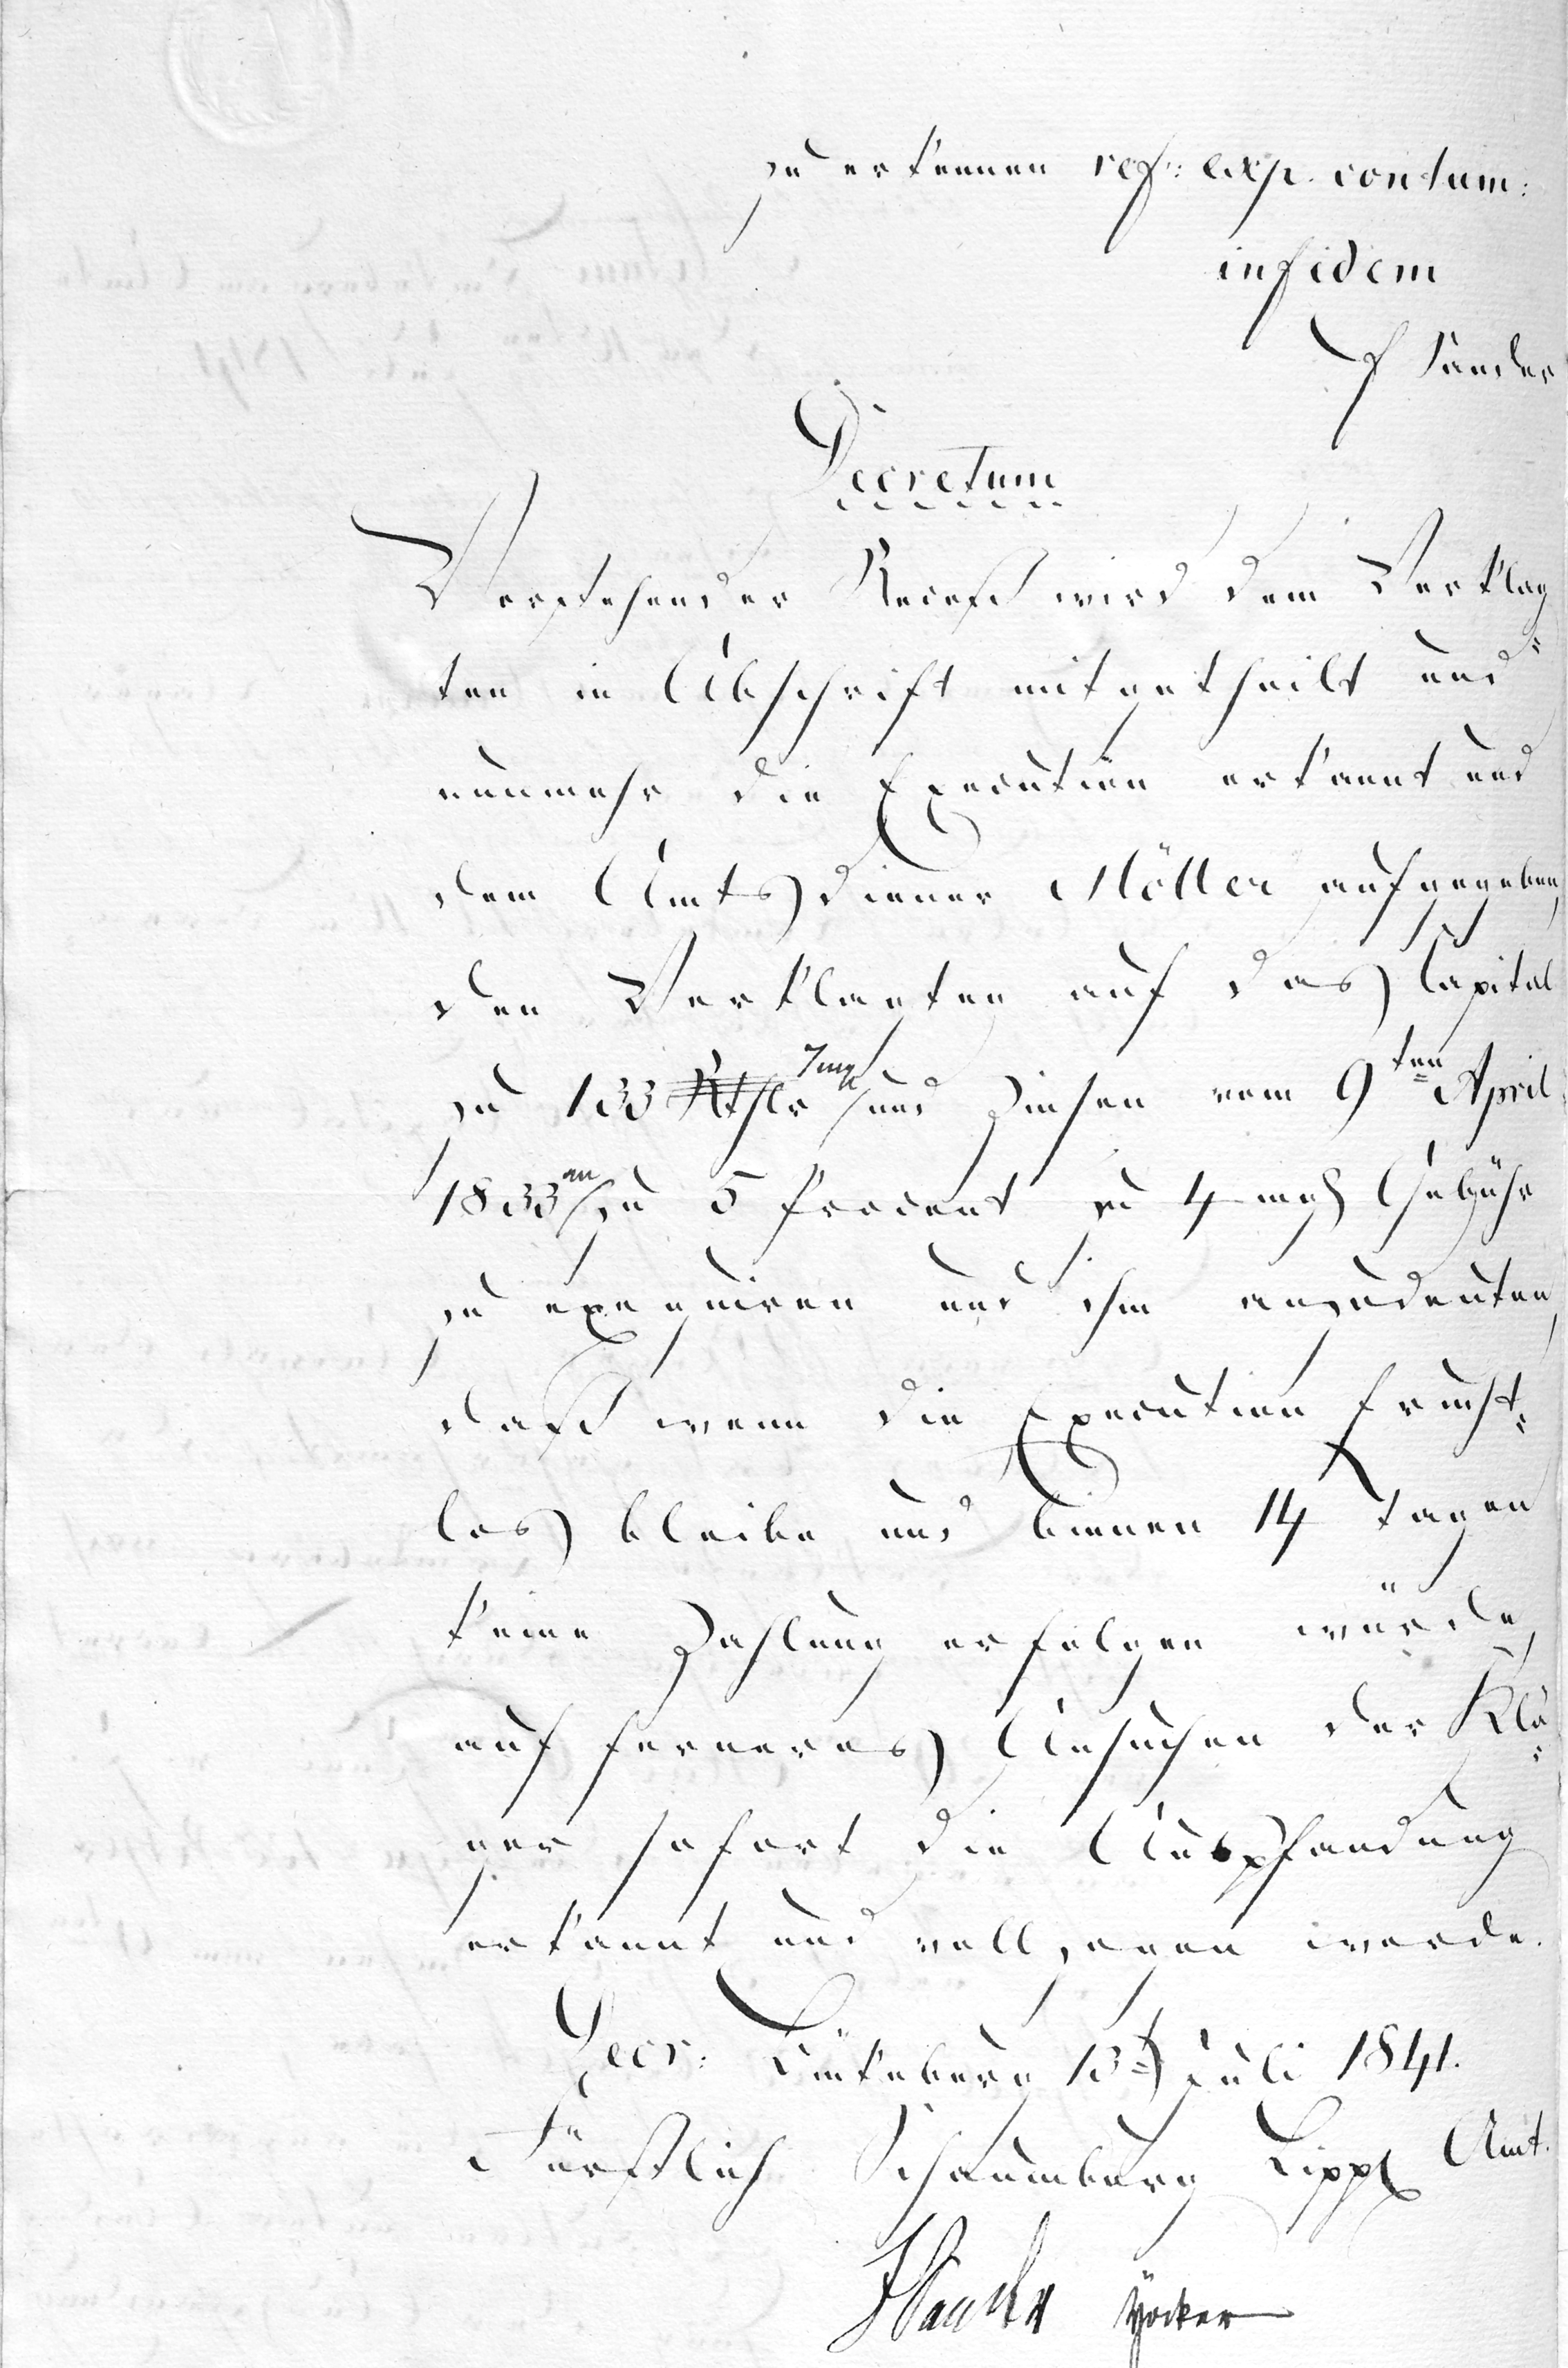 zu erkennen ref: exp. contum:
in fidem
Sander
Decretum
Vorstehender Receß wird dem Verklag
ten in Abschrift mitgetheilt und
nunmehr die Execution erkannt und
dem Amtsdiener Möller aufgegeben,
den Verklagten auf das Capital
zu 133 Rthlr 7 mgr und Zinsen vom 9ten April
1833 an zu 5 Procent zu 4 mgr Gebühr
zu exequiren und ihm anzudeuten,
daß wenn die Execution frucht-
los bleibe und binnen 14 Tagen
keine Zahlung erfolgen würde,
auf ferneres Ansuchen der Klä-
ger sofort die Auspfandung
erkannt und vollzogen werde.
Decr: Bückeburg 13t Juli 1841.
Fürstlich Schaumburg Lippl Amt.